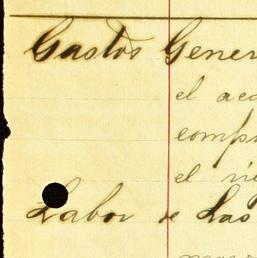 Gastos Gener
el aco
compr
el rie
Labor de Las